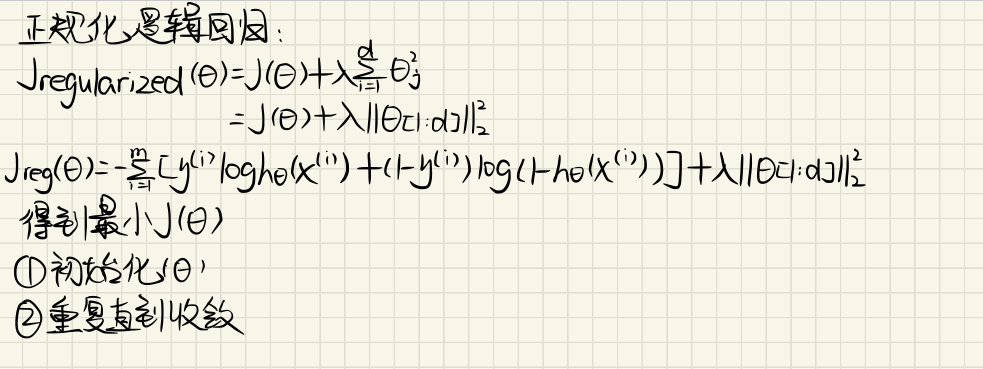 正规化逻辑回归：
Jregularized(θ)=J(θ)+λ∑_{i=1}^{d}θ_j^2
=J(θ)+λ||θ[1:d]||_2^2
Jreg(θ)=-∑_{i=1}^{m}[y^{(i)}loghθ(x^{(i)})+(1-y^{(i)})log(1-hθ(x^{(i)}))]+λ||θ[1:d]||_2^2
得到最小J(θ)
①初始化θ
②重复直到收敛